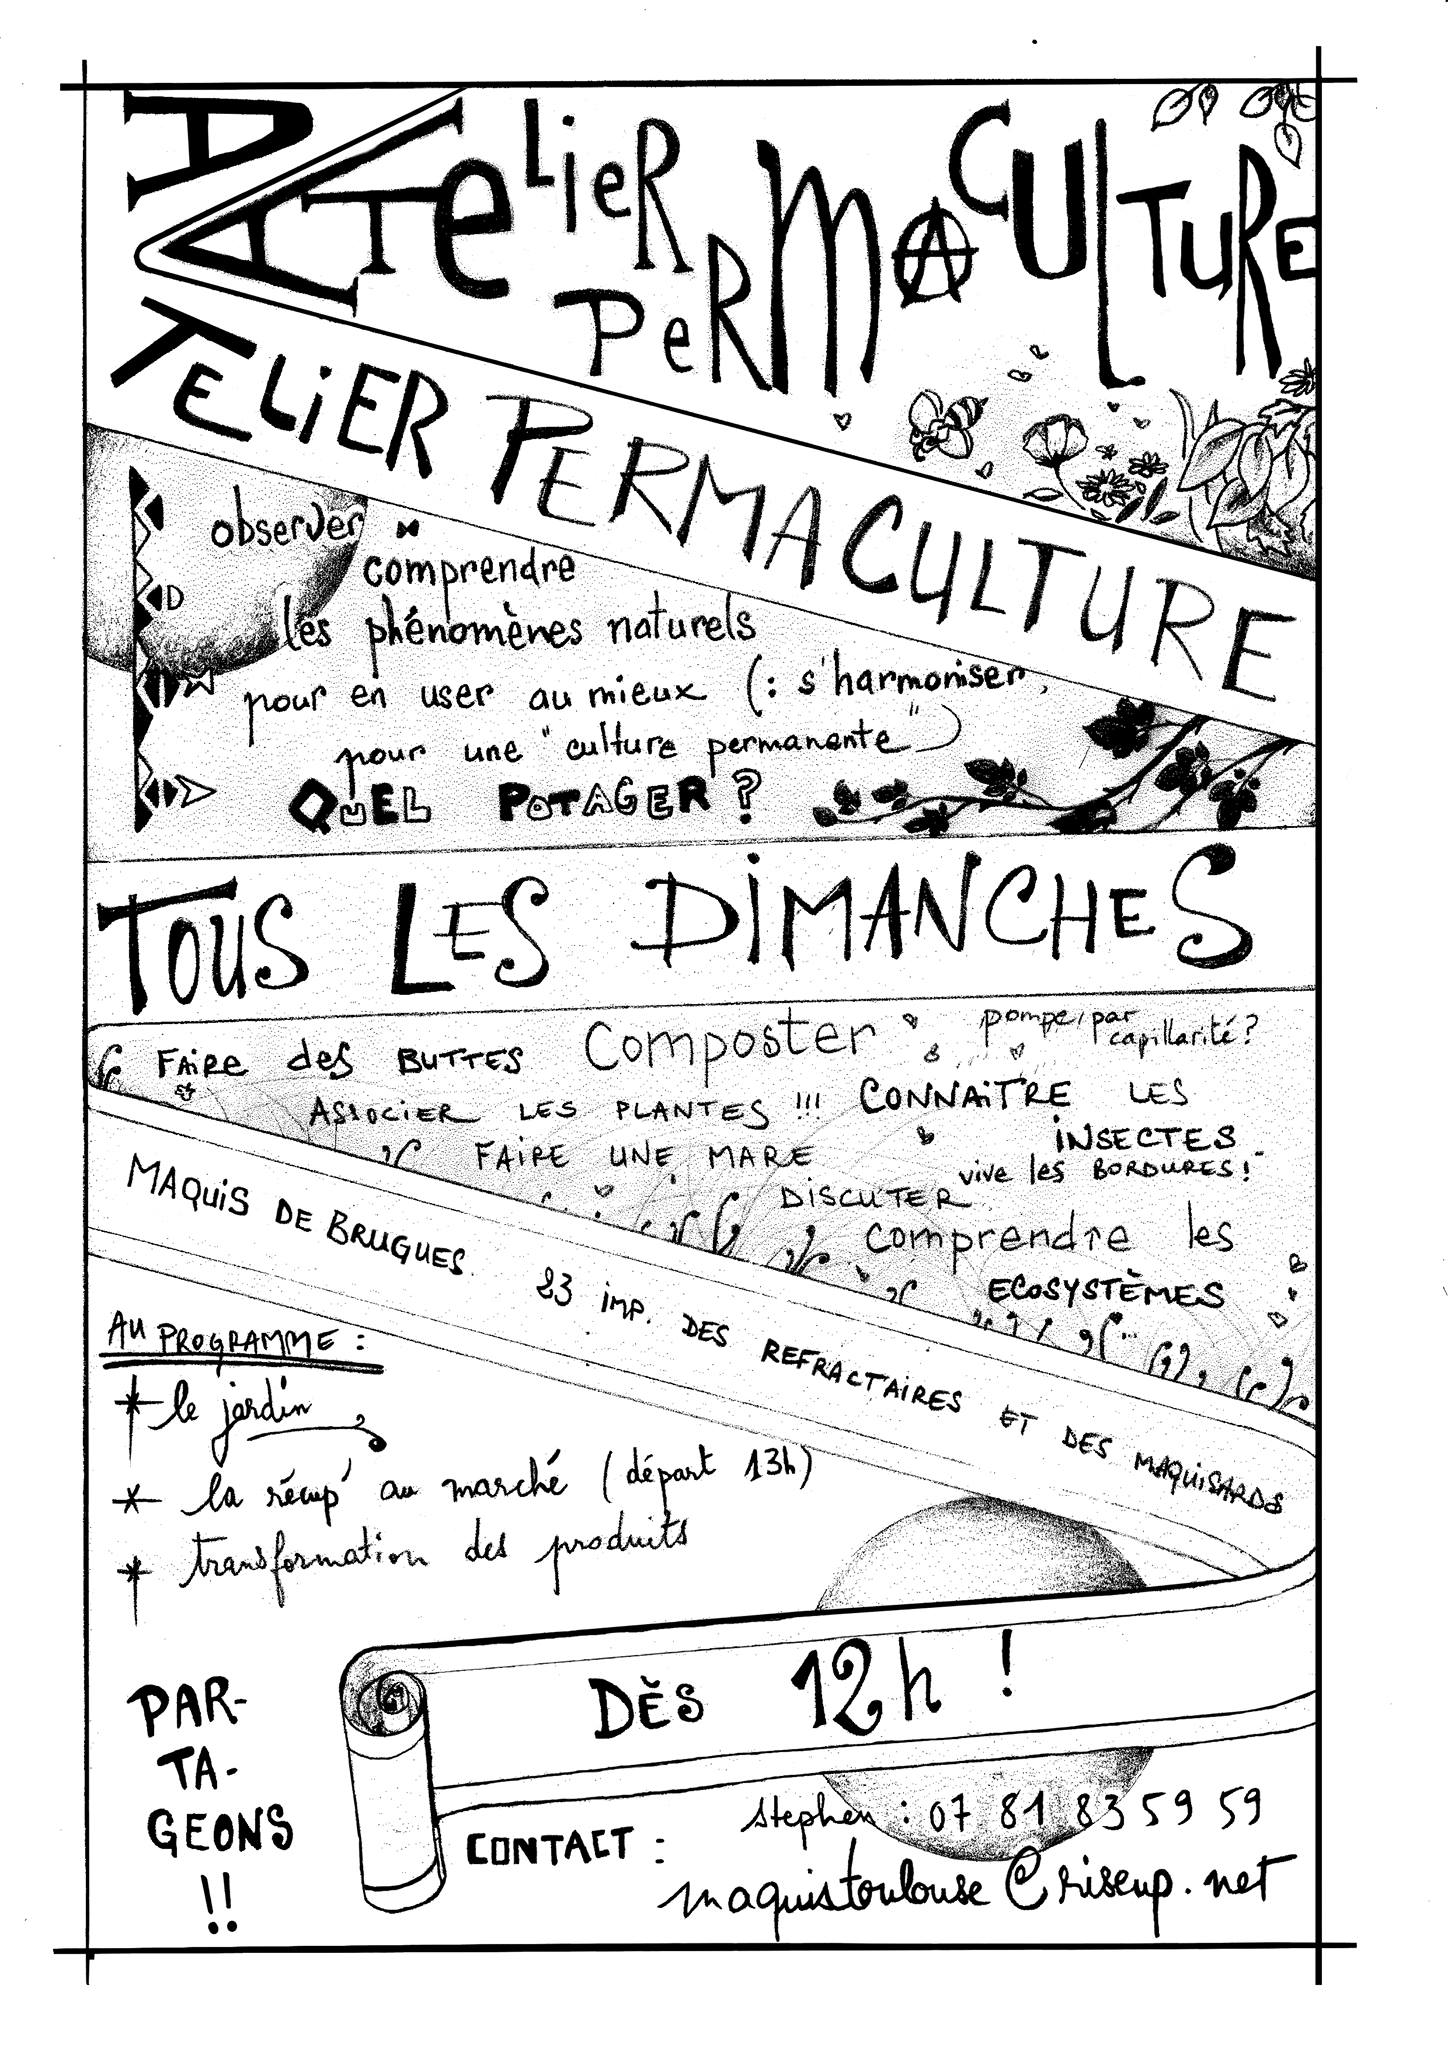 AteLieR
PeRMACULTURE
ATELiER PERMACULTURE
observer
comprendre
les phénomènes naturels
pour en user au mieux (: s'harmoniser,
pour une "culture permanente")
QUEL POTAGER ?
TOUS LES DIMANCHES
FAiRe des BUTTES Composter pompe par capillarité ?
ASSOCIER LES PLANTES !!! CONNAiTRE LES
iNSECTES
FAIRE UNE MARE
vive les BORDURES !
DiSCUTER
comprendre les
ECOSYSTÈMES
MAQUiS DE BRUGUES. 23 IMP. DES REFRACTAiRES ET DES MAQUiSARDS
AU PROGRAMME :
* le jardin
* la récup' au marché (départ 13h)
* transformation des produits
DÈS 12h !
PAR-
TA-
GEONS
!!
CONTACT :
stephen : 07 81 83 59 59
maquistoulouse@riseup.net